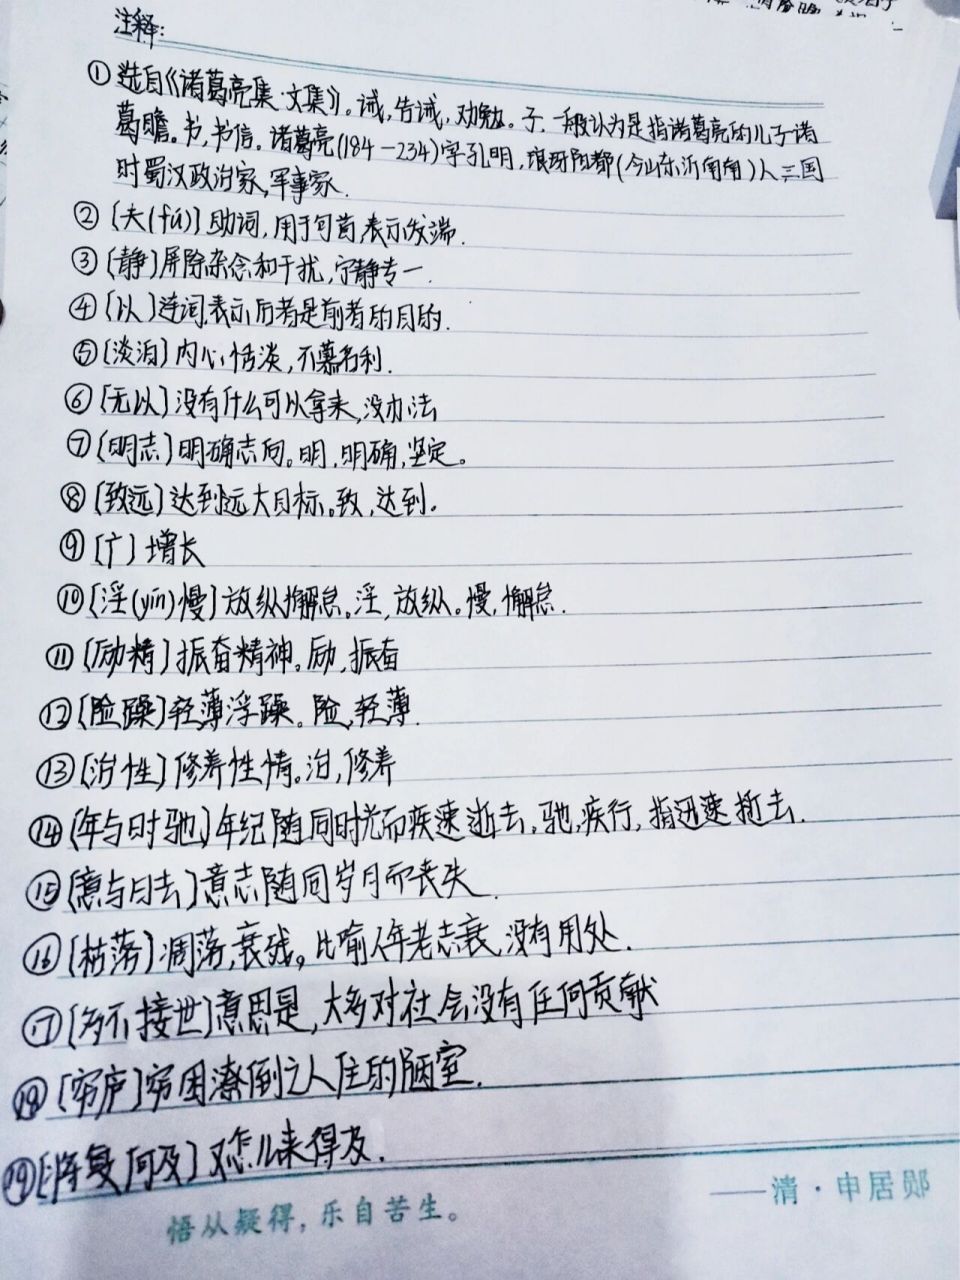 注释:
①选自《诸葛亮集·文集》。诫,告诫,劝勉。子,一般认为是指诸葛亮的儿子诸
葛瞻。书,书信。诸葛亮(184－234)字孔明,琅玡阳都(今山东沂南南)人三国
时蜀汉政治家,军事家.
②〔夫(fú)〕助词,用于句首,表示发端.
③〔静〕屏除杂念和干扰,宁静专一.
④〔以〕连词,表示后者是前者的目的.
⑤〔淡泊〕内心恬淡,不慕名利.
⑥〔无以〕没有什么可以拿来,没办法
⑦〔明志〕明确志向。明,明确,坚定。
⑧〔致远〕达到远大目标。致,达到.
⑨〔广〕增长
⑩〔淫(yín)慢〕放纵懈怠。淫,放纵。慢,懈怠.
⑪〔励精〕振奋精神。励,振奋
⑫〔险躁〕轻薄浮躁。险,轻薄.
⑬〔治性〕修养性情。治,修养
⑭〔年与时驰〕年纪随同时光而疾速逝去,驰,疾行,指迅速逝去.
⑮〔意与日去〕意志随同岁月而丧失
⑯〔枯落〕凋落,衰残。比喻人年老志衰,没有用处.
⑰〔多不接世〕意思是,大多对社会没有任何贡献
⑱〔穷庐〕穷困潦倒之人住的陋室.
⑲〔将复何及〕又怎么来得及.
——清·申居郧
悟从疑得,乐自苦生。